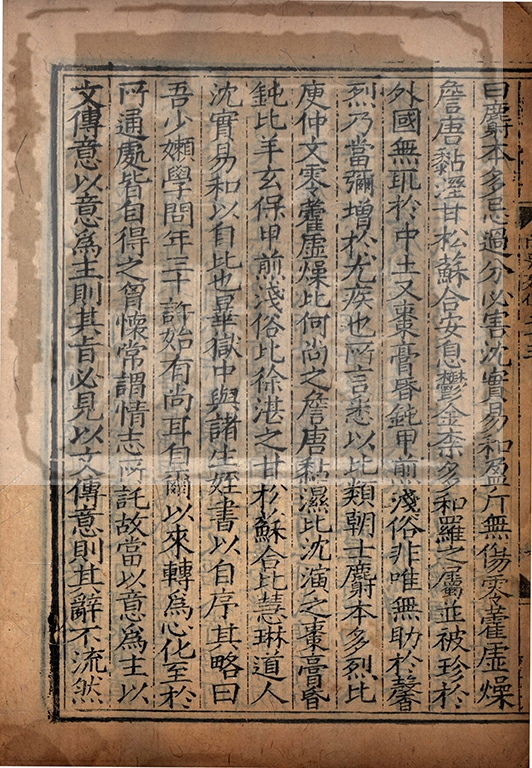 曰麝本多忌過分必害沈實易和盈斤無傷零藿虛燥
詹唐黏溼甘松蘇合安息鬱金柰多和羅之屬並被珍於
外國無取於中土又棗膏昏鈍甲煎淺俗非唯無助於馨
烈乃當彌增於尤疾也所言悉以比類朝士麝本多烈比
庾仲文零藿虛燥比何尚之詹唐黏濕比沈演之棗膏昏
鈍比羊玄保甲煎淺俗比徐湛之甘松蘇合比慧琳道人
沈實易和以自比也曅獄中與諸生姪書以自序其略曰
吾少嬾學問年三十許始有尚耳自爾以來轉為心化至於
所通處皆自得之胷懷常謂情志所託故當以意為主以
文傳意以意為主則其旨必見以文傳意則其辭不流然